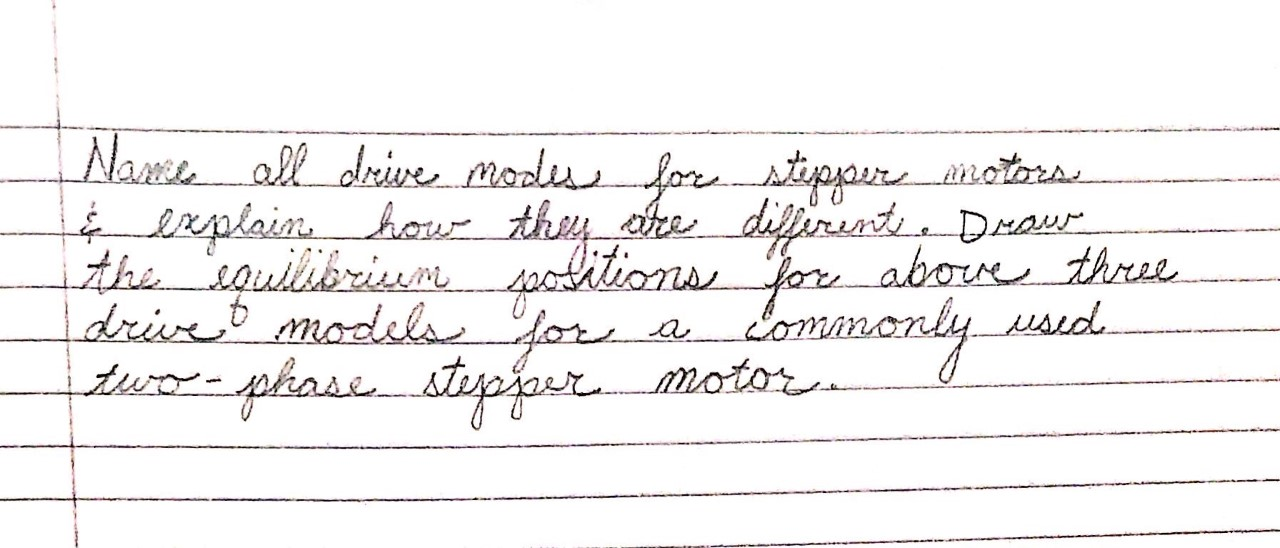 Name all drive modes for stepper motors
& explain how they are different. Draw
the equilibrium positions for above three
drive models for a commonly used
two-phase stepper motor.